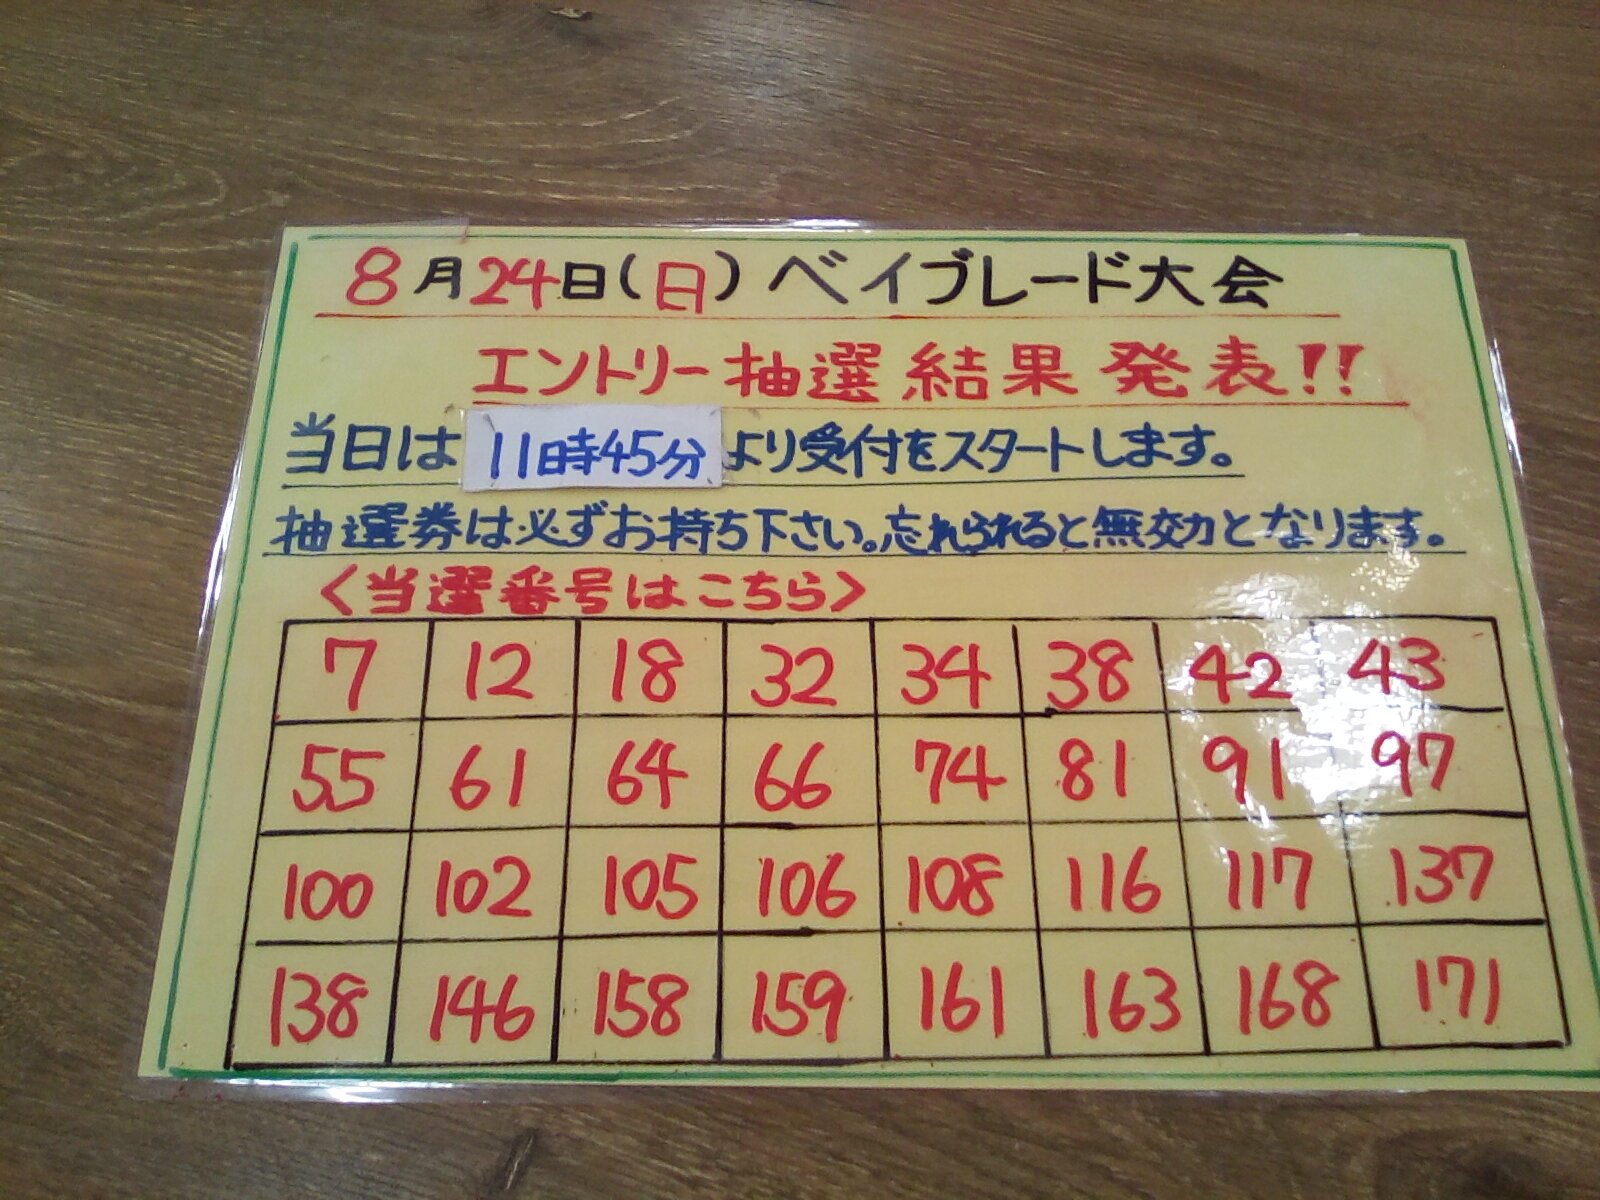 8月24日(日)ベイブレード大会
エントリー抽選結果発表!!
当日は11時45分より受付をスタートします。
抽選券は必ずお持ち下さい。忘れられると無効となります。
<当選番号はこちら>
7 12 18 32 34 38 42 43
55 61 64 66 74 81 91 97
100 102 105 106 108 116 117 137
138 146 158 159 161 163 168 171